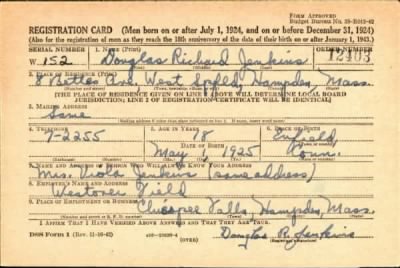 Form Approved
Budget Bureau No. 33-R013-42
REGISTRATION CARD (Men born on or after July 1, 1924, and on or before December 31, 1924)
(Also for the registration of men as they reach the 18th anniversary of the date of their birth on or after January 1, 1943.)
SERIAL NUMBER 1. NAME (Print) ORDER NUMBER
W 152 Douglas Richard Jenkins 12403
2. PLACE OF RESIDENCE (Print)
8 Ave. West Spfld. Hampden, Mass.
[THE PLACE OF RESIDENCE GIVEN ON LINE 2 ABOVE WILL DETERMINE LOCAL BOARD
JURISDICTION; LINE 2 OF REGISTRATION CERTIFICATE WILL BE IDENTICAL]
3. MAILING ADDRESS
Same
4. TELEPHONE 5. AGE IN YEARS 6. PLACE OF BIRTH
7-2255 18 Enfield,
DATE OF BIRTH
May 1, 1925 Conn.
7. NAME AND ADDRESS OF PERSON WHO WILL ALWAYS KNOW YOUR ADDRESS
Mrs. Viola Jenkins (same address)
8. EMPLOYER'S NAME AND ADDRESS
Westover Field
9. PLACE OF EMPLOYMENT OR BUSINESS
Chicopee Falls, Hampden, Mass.
I AFFIRM THAT I HAVE VERIFIED ABOVE ANSWERS AND THAT THEY ARE TRUE.
DSS Form 1 (Rev. 11-16-42) (OVER) Douglas R. Jenkins